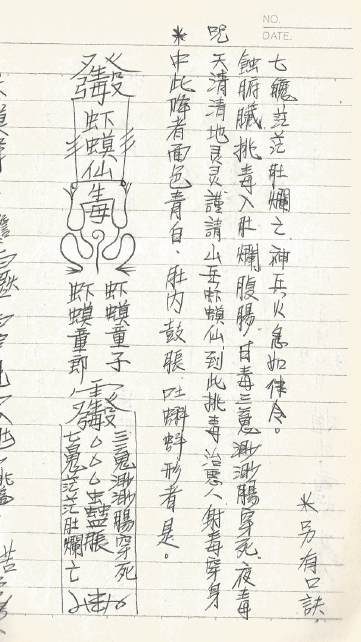 NO.
DATE.
※另有口訣
七魄茫茫肚爛亡 神兵火急如律令。
蝕腑臟挑毒入肚爛腹腸 日毒三魂渺渺腸穿死 夜毒
呪 天清清地灵灵謹請山岳虾蟆仙到此挑毒治惡人 射毒穿身
*中此降者面色青白、肚内鼓脹、吐蝌蚪形者是。
發毒
虾蟆仙
毒
虾蟆童子
虾蟆童郎
三魂渺渺腸穿死
虫蠱脹
七魂茫茫肚爛亡